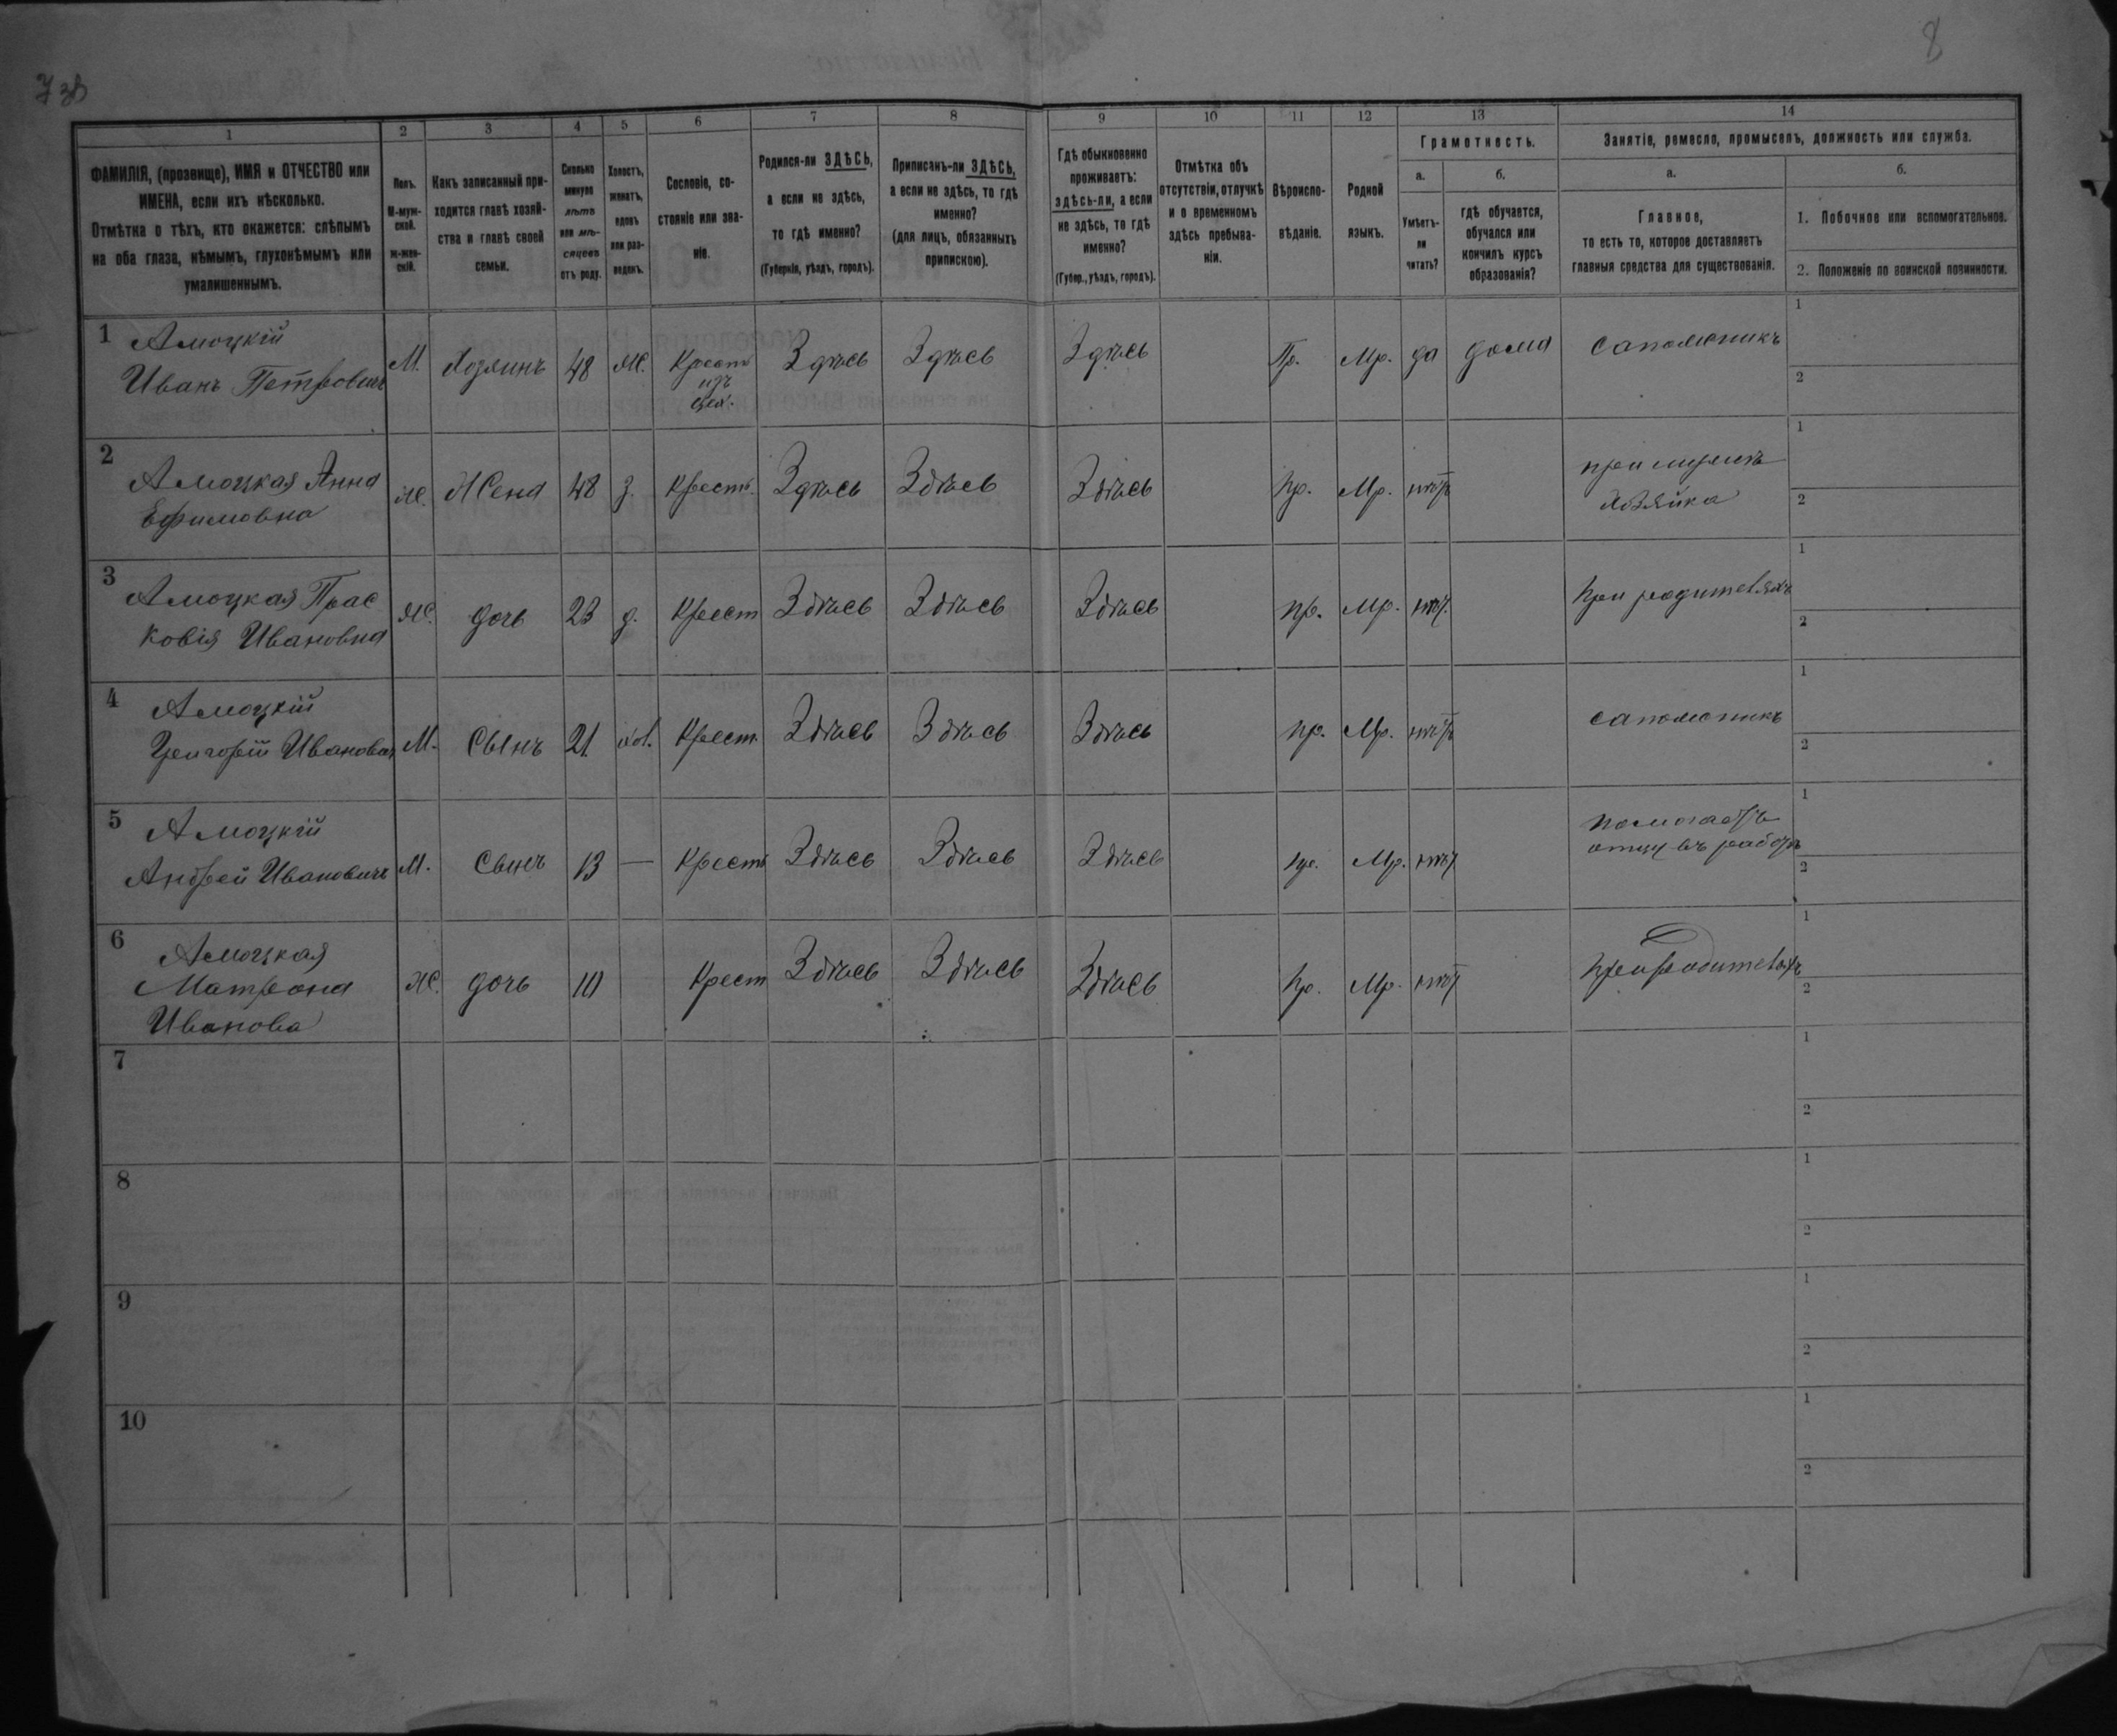 7 зв
8
1 2 3 4 5 6 7 8 9 10 11 12 13 14
ФАМИЛІЯ, (прозвище), ИМЯ и ОТЧЕСТВО или
ИМЕНА, если ихъ нѣсколько.
Отмѣтка о тѣхъ, кто окажется: слѣпымъ
на оба глаза, нѣмымъ, глухонѣмымъ или
умалишеннымъ.
Полъ.
М-муж-
ской.
ж-жен-
скій.
Какъ записанный при-
ходится главѣ хозяй-
ства и главѣ своей
семьи.
Сколько
минуло
лѣтъ
или мѣ-
сяцевъ
отъ роду.
Холостъ,
женатъ,
вдовъ
или раз-
веденъ.
Сословіе, со-
стояніе или зва-
ніе.
Родился-ли ЗДѢСЬ,
а если не здѣсь,
то гдѣ именно?
(Губернія, уѣздъ, городъ).
Приписанъ-ли ЗДѢСЬ,
а если не здѣсь, то гдѣ
именно?
(для лицъ, обязанныхъ
припискою).
Гдѣ обыкновенно
проживаетъ:
здѣсь-ли, а если
не здѣсь, то гдѣ
именно?
(Губер., уѣздъ, городъ).
Отмѣтка объ
отсутствіи, отлучкѣ
и о временномъ
здѣсь пребыва-
ніи.
Вѣроиспо-
вѣданіе.
Родной
языкъ.
Грамотность.
а.
Умѣетъ-
ли
читать?
б.
гдѣ обучается,
обучался или
кончилъ курсъ
образованія?
Занятіе, ремесло, промыселъ, должность или служба.
а.
Главное,
то есть то, которое доставляетъ
главныя средства для существованія.
б.
1. Побочное или вспомогательное.
2. Положеніе по воинской повинности.
1 Амоцкій
Иванъ Петровичъ М. Хозяинъ 48 Ж. Крест Здѣсь Здѣсь Здѣсь Пр. Мр. да дома сапожникъ 1
изъ
2
2 Амоцкая Анна
Ефимовна Ж. Жена 48 з. Крест. Здѣсь Здѣсь Здѣсь Пр. Мр. нѣтъ при мужѣ 1
хозяйка 2
3 Амоцкая Прас
ковія Ивановна Ж. дочь 23 д. Крест Здѣсь Здѣсь Здѣсь пр. Мр. нѣт. При родителяхъ 1
2
4 Амоцкій
Григорій Иванович М. Сынъ 21 хол. Крест. Здѣсь Здѣсь Здѣсь пр. Мр. нѣтъ сапожникъ 1
2
5 Амоцкій
Андрей Ивановичъ М. Сынъ 13 — Крест Здѣсь Здѣсь Здѣсь пр. Мр. нѣт помогаетъ 1
отцу въ работѣ 2
6 Амоцкая
Матрона Ж. дочь 10 Крест Здѣсь Здѣсь Здѣсь Пр. Мр. нѣт При родителяхъ 1
Иванова 2
7 1
2
8 1
2
9 1
2
10 1
2